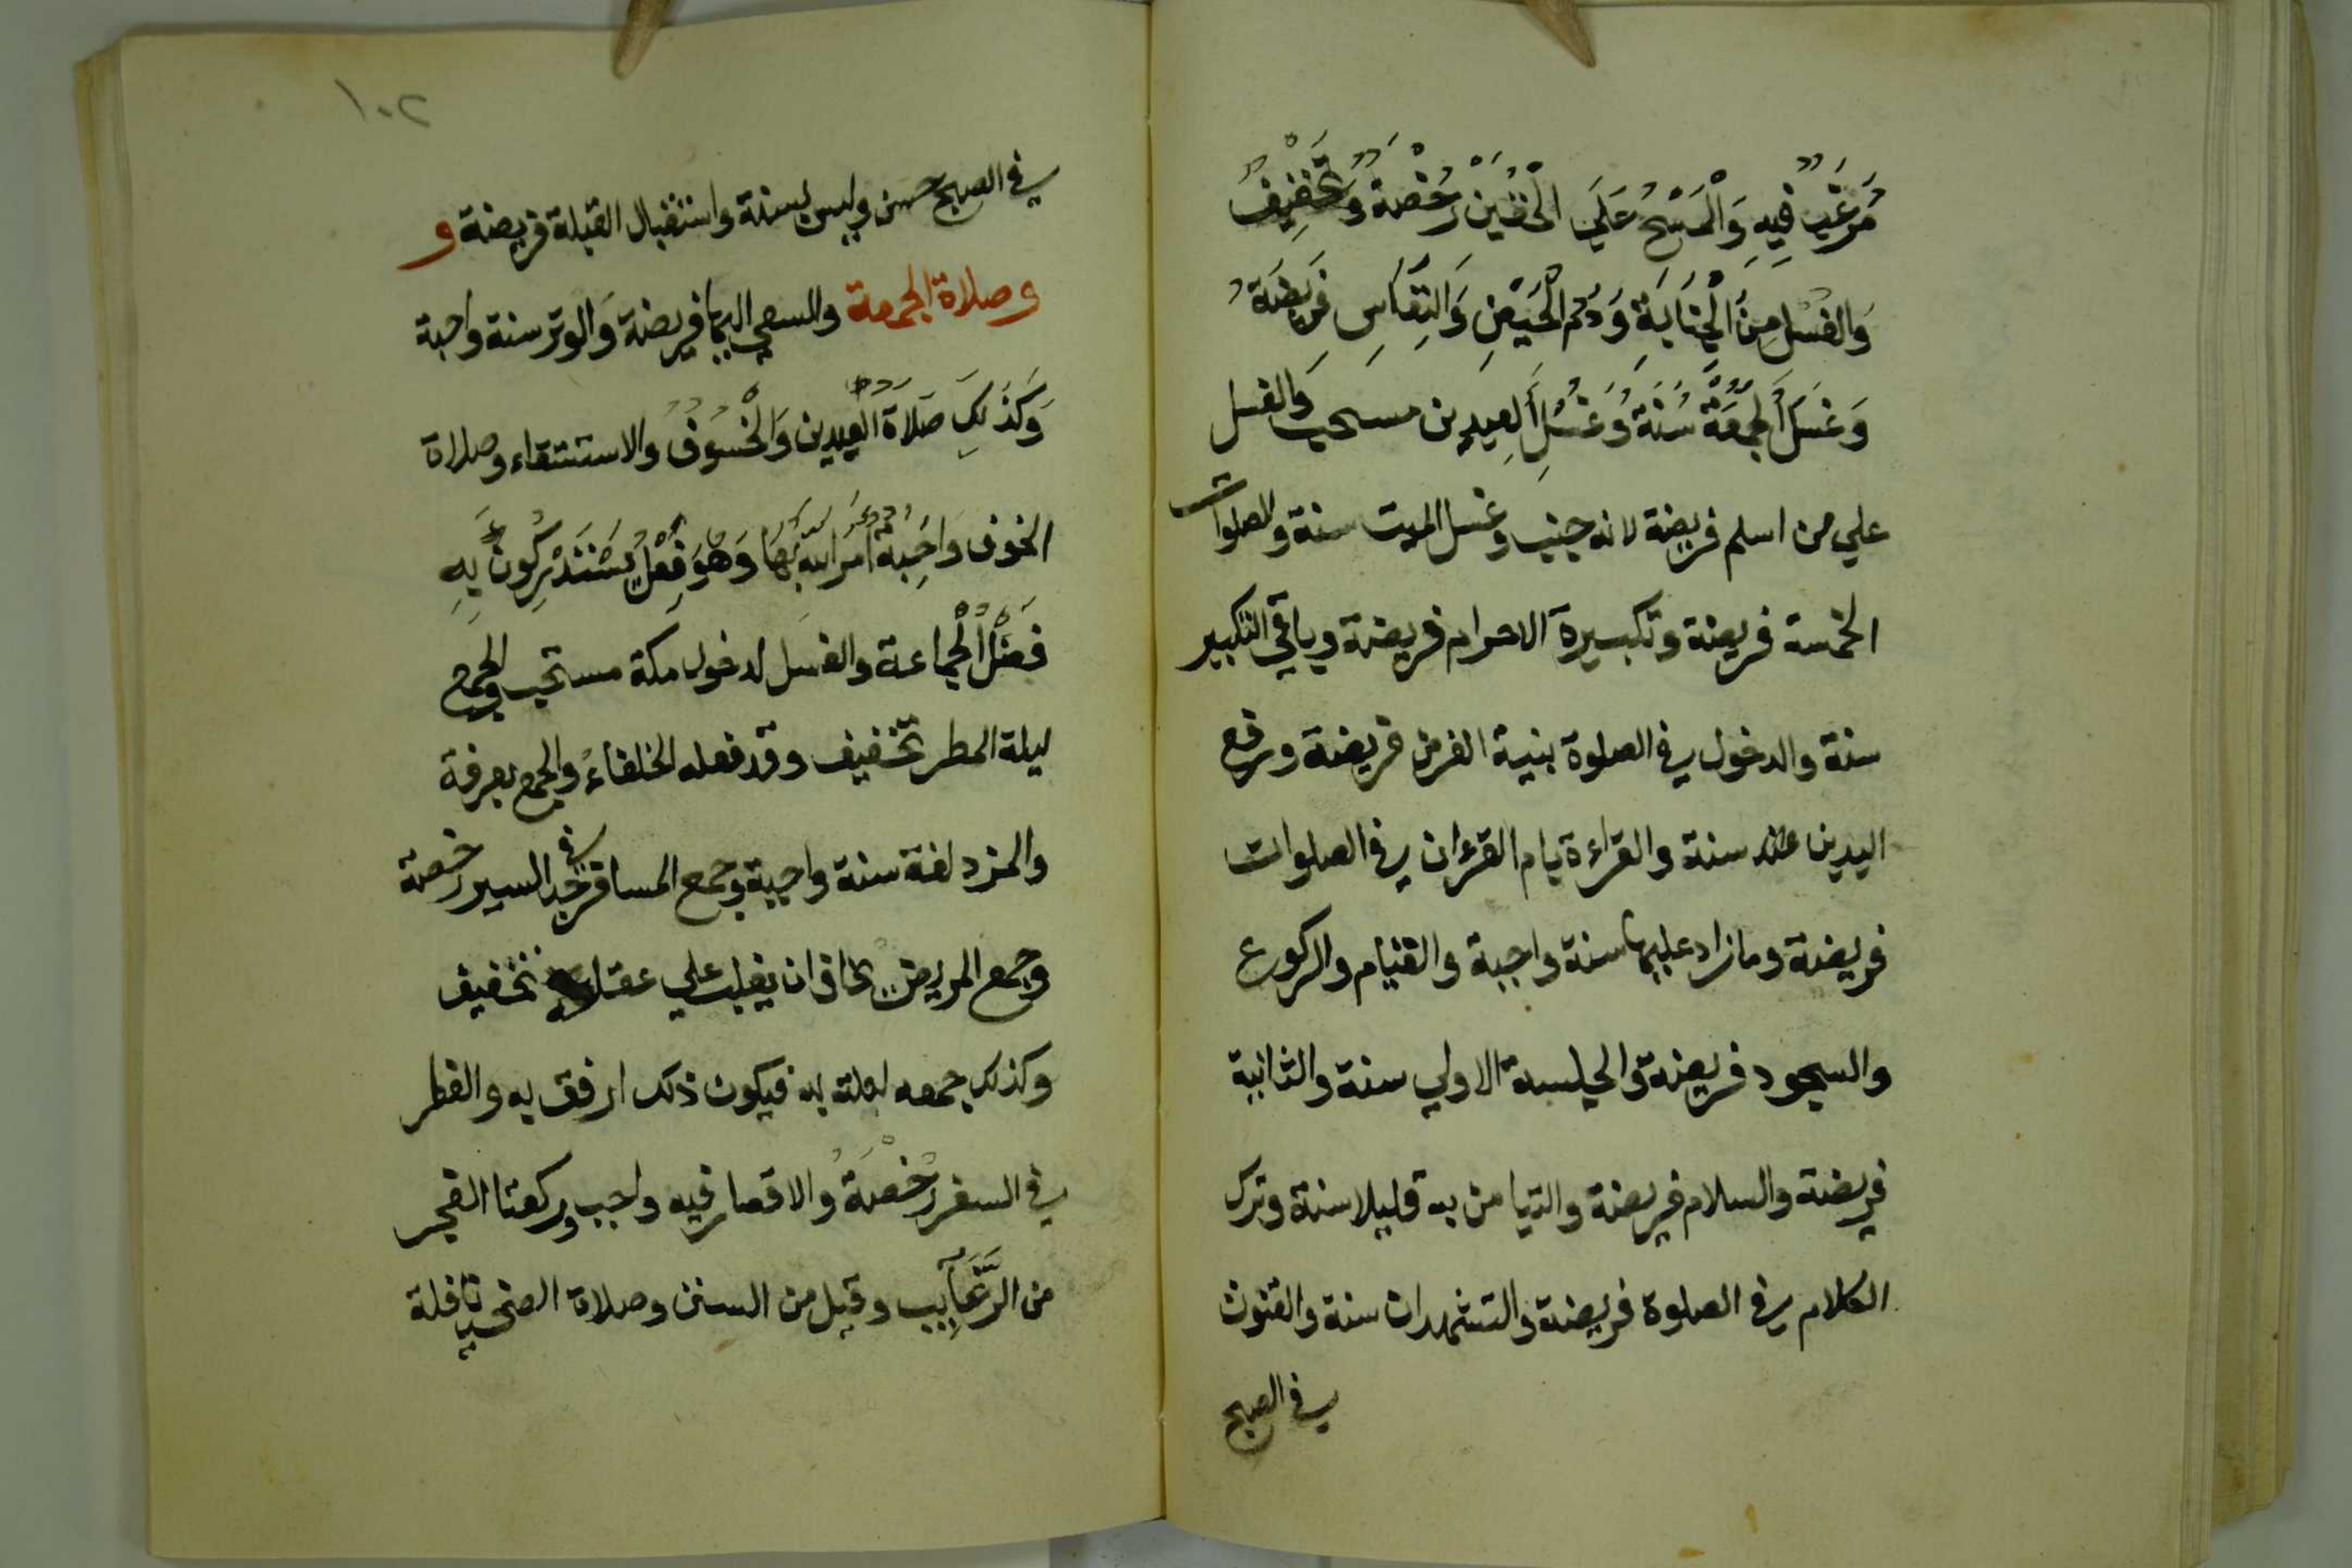 مُرَغَّبٌ فِيهِ وَالْمَسْحُ عَلَي الْخُفَّيْنِ رُخْصَةٌ وَتَخْفِيْفٌ
وَالغُسْلُ مِنَ الْجَنَابَةِ وَدَمِ الْحَيْضِ وَالنِّفَاسِ فَرِيضَةٌ
وَغُسْلُ الْجُمُعَةِ سُنَّةٌ وَغُسْلُ الْعِيدين مستحب وَالغسل
علي من اسلم فريضة لانه جنب وغسل الميت سنة والصلوات
الخمسة فريضة وتكبيرة الاحرام فريضة وباقي التكبير
سنة والدخول في الصلوة بنية الفرض فريضة ورفع
اليدين عند سنة والقراءة بام القرءان في الصلوات
فريضة وما زاد عليها سنة واجبة والقيام والركوع
والسجود فريضة والجلسة الاولي سنة والثانية
فريضة والسلام فريضة والتيامن به قليلا سنة وترك
الكلام في الصلوة فريضة والتشهدان سنة والقنوت
في الصبح
١٠٢
في الصبح حسن وليس بسنة واستقبال القبلة فريضة و
وصلاة الجمعة والسعي اليها فريضة وَالوتر سنة واجبة
وَكَذَلِكَ صَلَاةُ الْعِيدين وَالْخُسُوفُ والاستسقاء وصلاة
الخوف وَاجِبَةٌ اَمَرَ اللهُ بِهَا وَهُوَ فِعْلٌ يَسْتَدْرِكُونَ بِهِ
فَضْلَ الْجماعة والغسل لدخول مكة مستحب والجمع
ليلة المطر تخفيف وقد فعله الخلفاءُ والجمع بعرفة
والمزدلفة سنة واجبة وجمع المسافر في جد السير رخصة
وجمع المريض يخاف ان يغلب علي عقله تخفيف
وكذلك جمعه لعلة به فيكون ذلك ارفق به والفطر
في السفر رُخْصَةٌ والاقصار فيه واجب وركعتا الفجر
من الرَّغَآيِب وقيل من السنن وصلاة الضحي نافلة